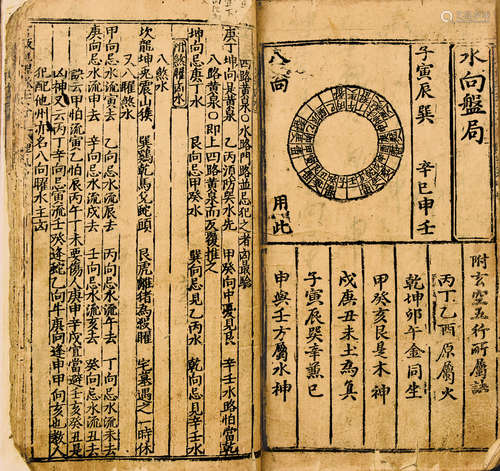 水向盤局
子寅辰巽
辛巳申壬
八向
用此
附玄空五行所屬訣
丙丁乙酉原屬火
乾坤卯午金同生
甲癸亥艮是木神
戌庚丑未土為真
子寅辰巽辛熏巳
申與壬方屬水神
四路黃泉〇水路門路並忌犯之者凶最驗
庚丁坤向是黃泉 乙丙須防巽水先 甲癸向中憂見艮 辛壬水路怕當乾
八路黃泉〇即上四路黃泉而反覆推之
坤向忌庚丁水 艮向忌甲癸水 巽向忌見乙丙水 乾向忌見辛壬水
附煞曜水
八煞水
坎龍坤兔震山猴 巽鷄乾馬兌蛇頭 艮虎離猪為殺曜 宅墓遇之一時休
又八曜煞水
甲向忌水流寅去 乙向忌水流辰去 丙向忌水流午去 丁向忌水流未去
庚向忌水流申去 辛向忌水流戌去 壬向忌水流亥去 癸向忌水流丑去
訣云甲怕流寅乙怕辰丙午丁未要傷人庚申辛戌宜當避壬亥癸丑是
凶神又云丙丁辛向忌寅流壬癸逢蛇乙向牛庚向逢申甲向亥也教人
犯配他州亦名八向曜水主凶